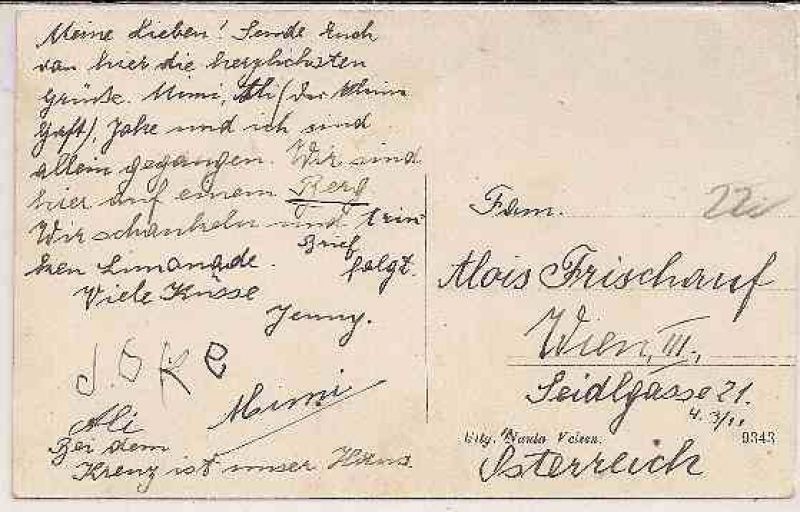 Meine Lieben! Sende Euch
von hier die herzlichsten
Grüße. Mimi, Ali (der kleine
Joke und ich sind
allein gegangen. Wir sind
hier auf einem Berg
Wir schaukeln und trin-
ken Limonade. Brief folgt.
Viele Küsse
Jenny.
JOKE
Mimi
Ali
Bei dem
Kreuz ist unser Haus.
Fam.
Alois Frischauf
Wien, III.,
Seidlgasse 21.
Uitg. Nauta Velsen.
9343
Österreich